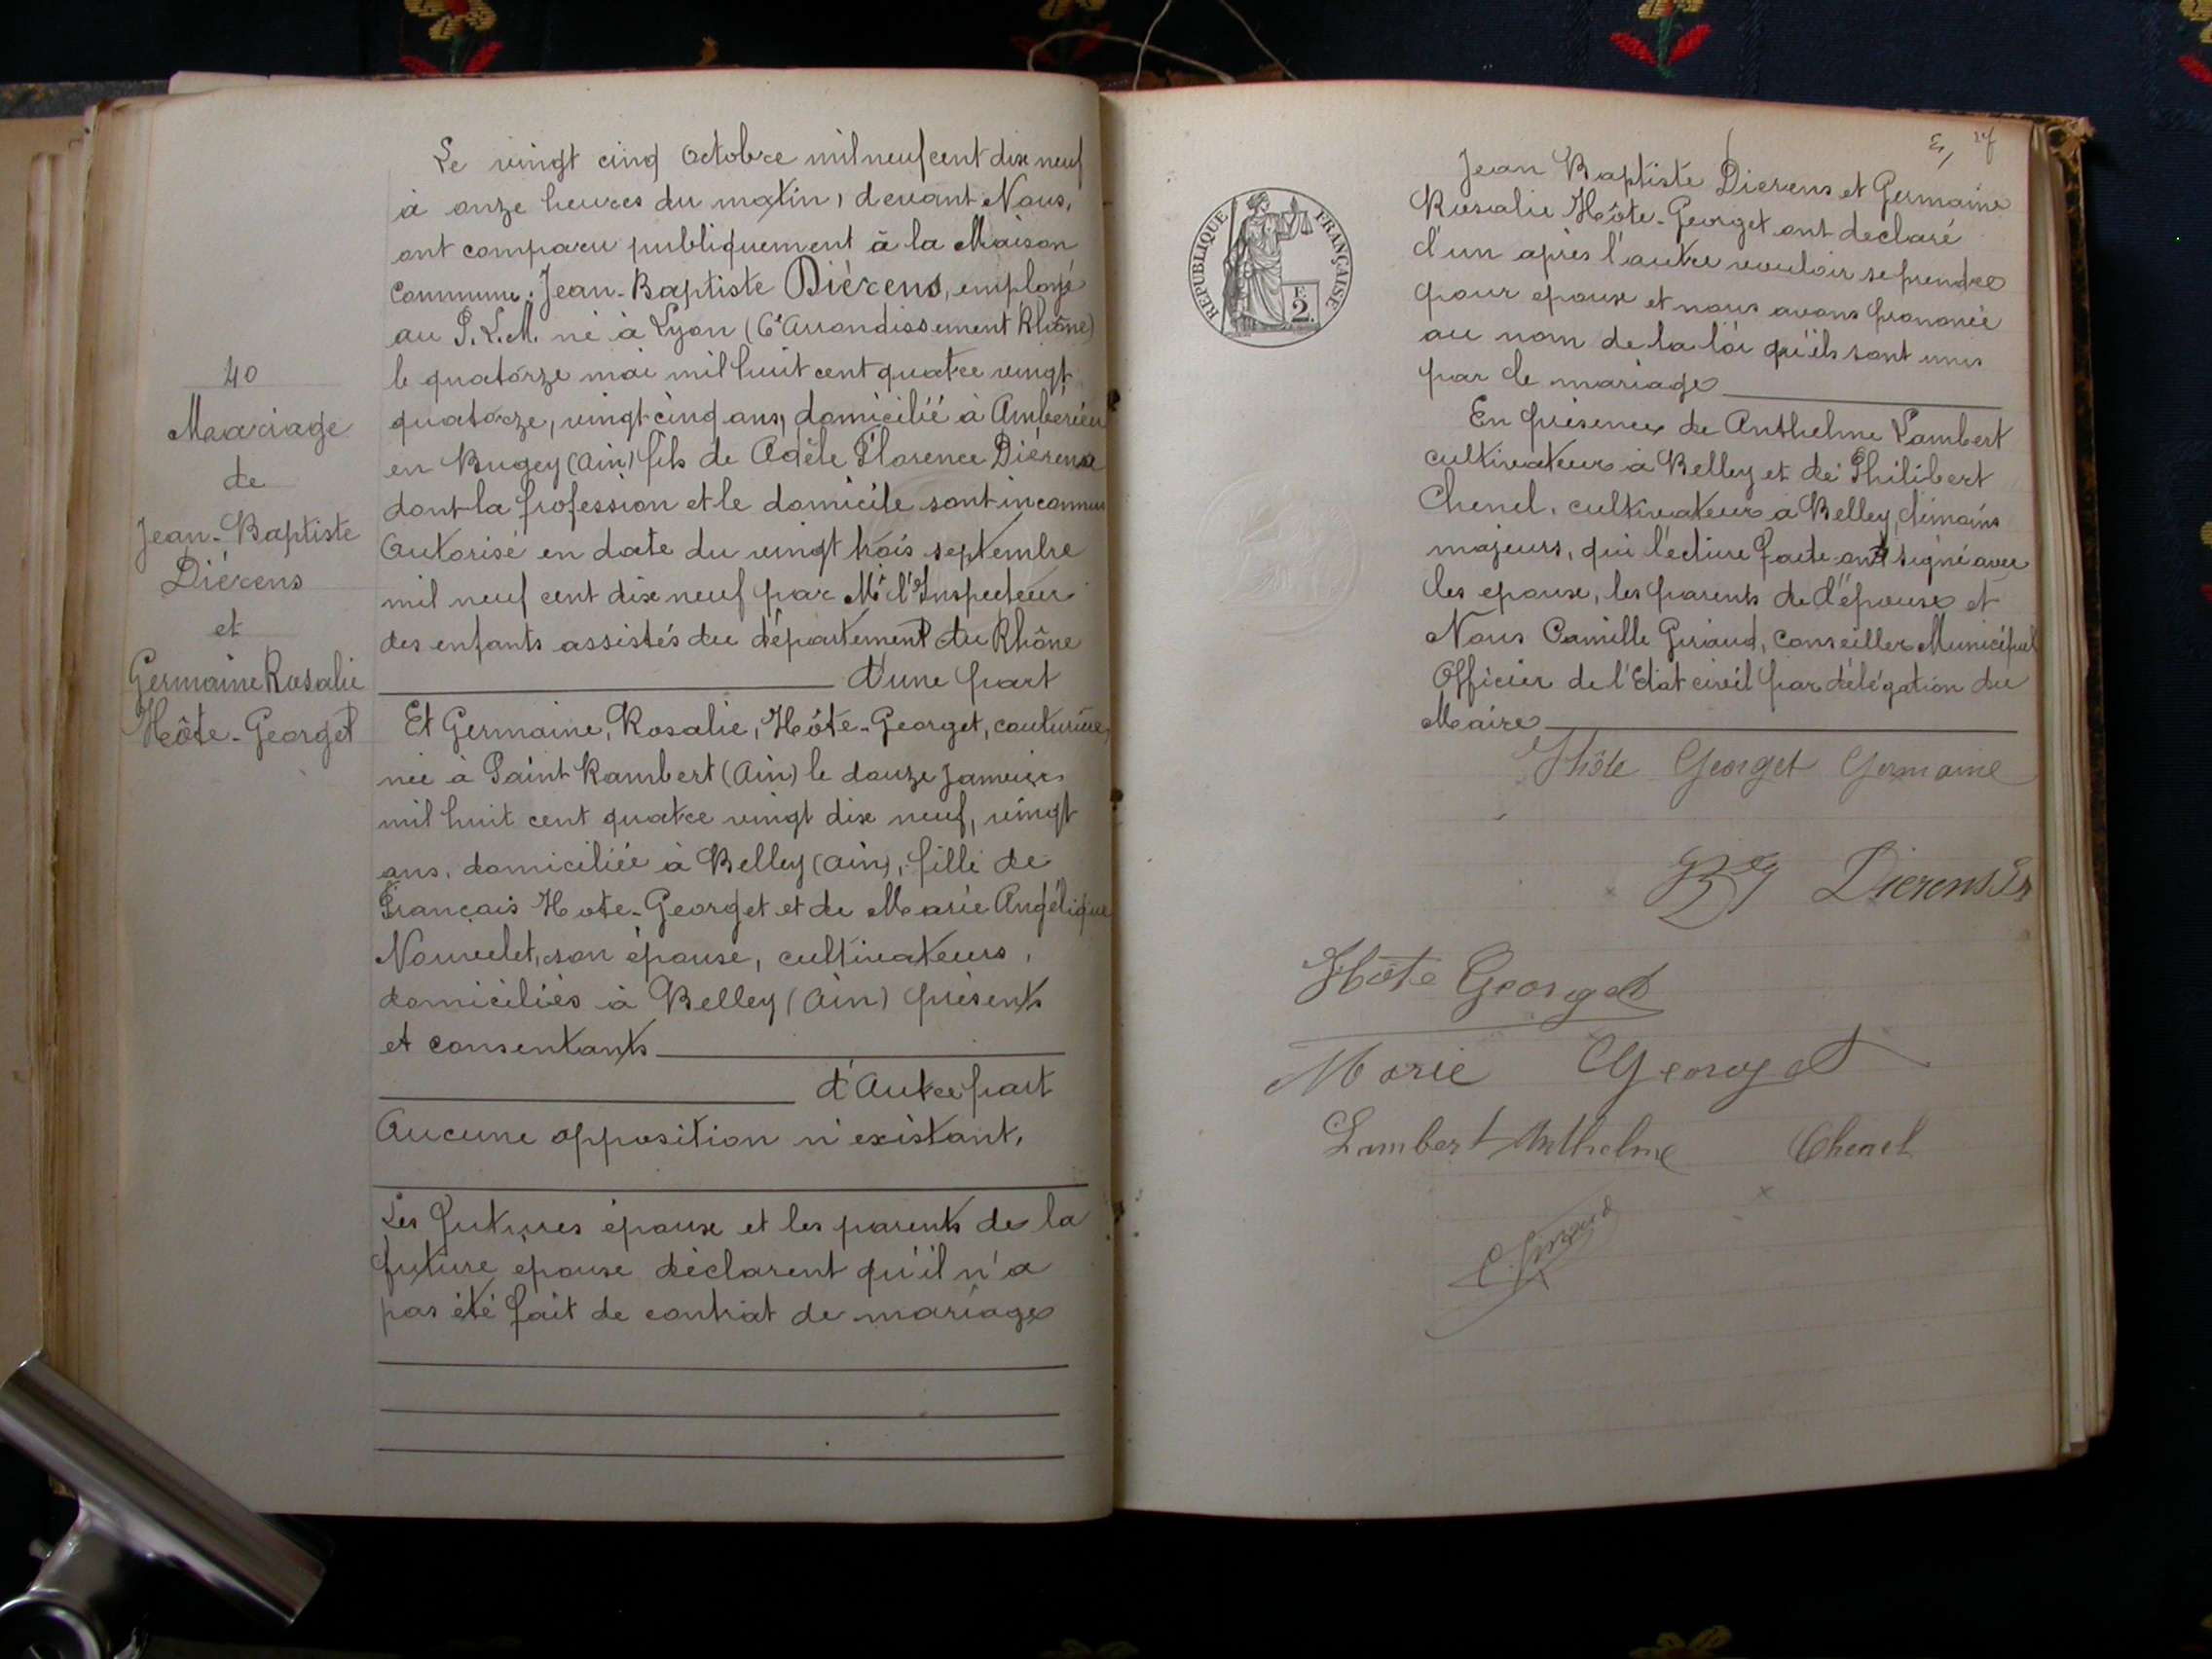 40
Mariage
de
Jean-Baptiste
Diérens
et
Germaine Rosalie
Hôte-Georget
Le vingt cinq Octobre mil neuf cent dix neuf
à onze heures du matin, devant Nous,
ont comparu publiquement à la Maison
Commune: Jean-Baptiste Diérens, employé
au P.L.M. né à Lyon (6e Arrondissement Rhône)
le quatorze mai mil huit cent quatre vingt
quatorze, vingt-cinq ans, domicilié à Ambérieu
en Bugey (Ain) fils de Adèle Florence Diérens
dont la profession et le domicile sont inconnus
Autorisé en date du vingt trois septembre
mil neuf cent dix neuf par Mr l'Inspecteur
des enfants assistés du département du Rhône
D'une part
Et Germaine, Rosalie, Hôte-Georget, couturière,
née à Saint Rambert (Ain) le douze Janvier
mil huit cent quatre vingt dix neuf, vingt
ans, domiciliée à Belley (Ain), fille de
François Hote-Georget et de Marie Angélique
Nouvelet, son épouse, cultivateurs,
domiciliés à Belley (Ain) présents
et consentants
d'Autre part
Aucune opposition n'existant,
Les futures époux et les parents de la
future épouse déclarent qu'il n'a
pas été fait de contrat de mariage
27
Jean Baptiste Dierens et Germaine
Rosalie Hôte-Georget ont declaré
l'un après l'autre vouloir se prendre
pour epoux et nous avons prononcé
au nom de la loi qu'ils sont unis
par le mariage
En présence de Anthelme Lambert
cultivateur à Belley et de Philibert
Chenel, cultivateur à Belley, témoins
majeurs, qui lecture faite ont signé avec
les epoux, les parents de l'épouse et
Nous Camille Giraud, Conseiller Municipal
Officier de l'Etat civil par délégation du
Maire
REPUBLIQUE FRANÇAISE
F.
2.
Hôte Georget Germaine
Dierens
Hôte Georget
Marie Georget
Lambert Anthelme Chenel
C. Giraud